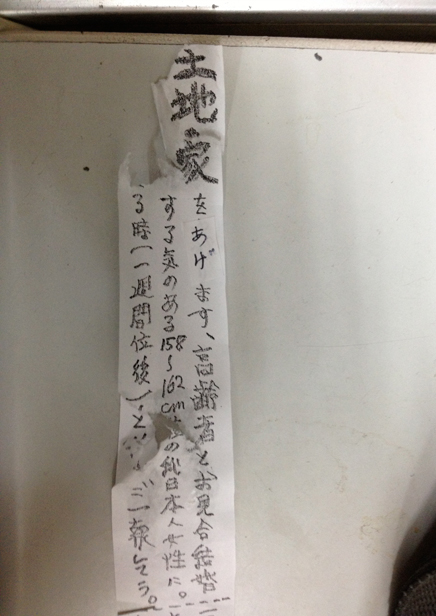 土地家
をあげます、高齢者とお見合結婚
する気のある158〜162cm位の純日本人女性に。
る時(一週間位後)、と
ご一報して